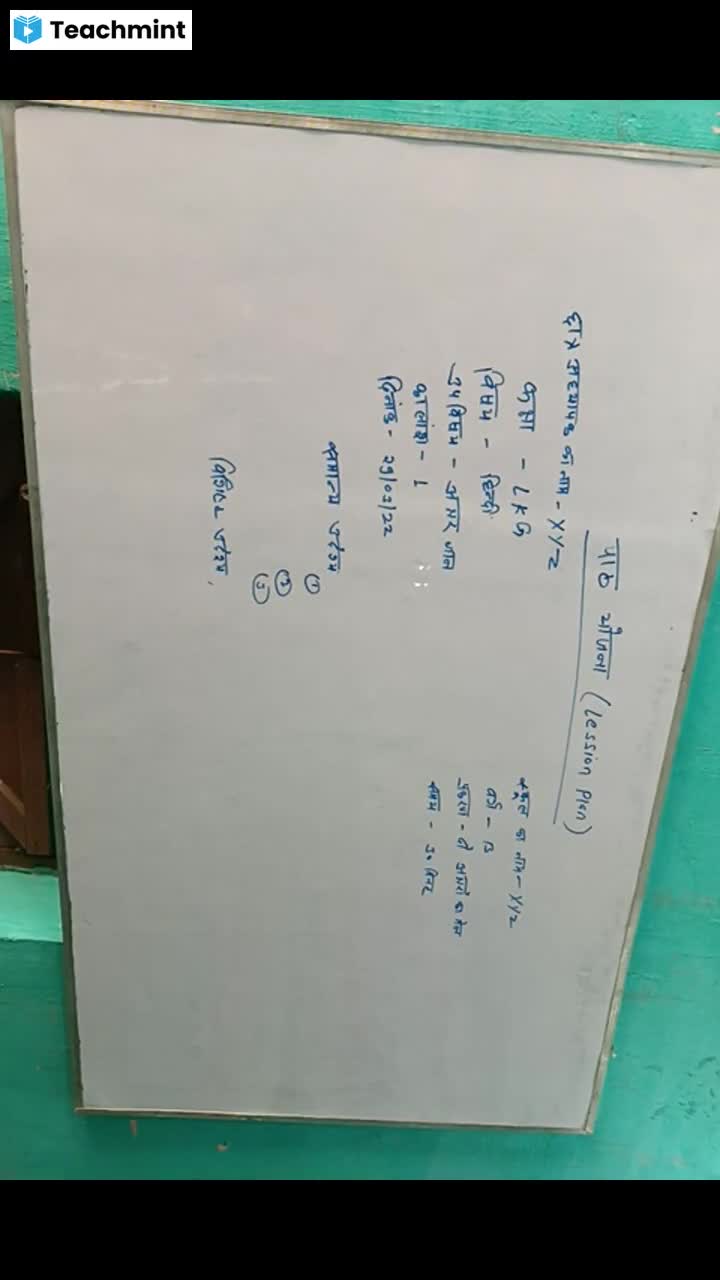 Teachmint
पाठ योजना (Lession Plan)
छात्र अध्यापक का नाम - XYZ
स्कूल का नाम - XYZ
कक्षा - LKG
वर्ग - B
विषय - हिन्दी
उपविषय - अक्षर ज्ञान
प्रकरण - दो अक्षरों का मेल
कालांश - 1
समय - 30 मिनट
दिनांक - 29/03/22
सामान्य उद्देश्य
①
②
③
विशिष्ट उद्देश्य